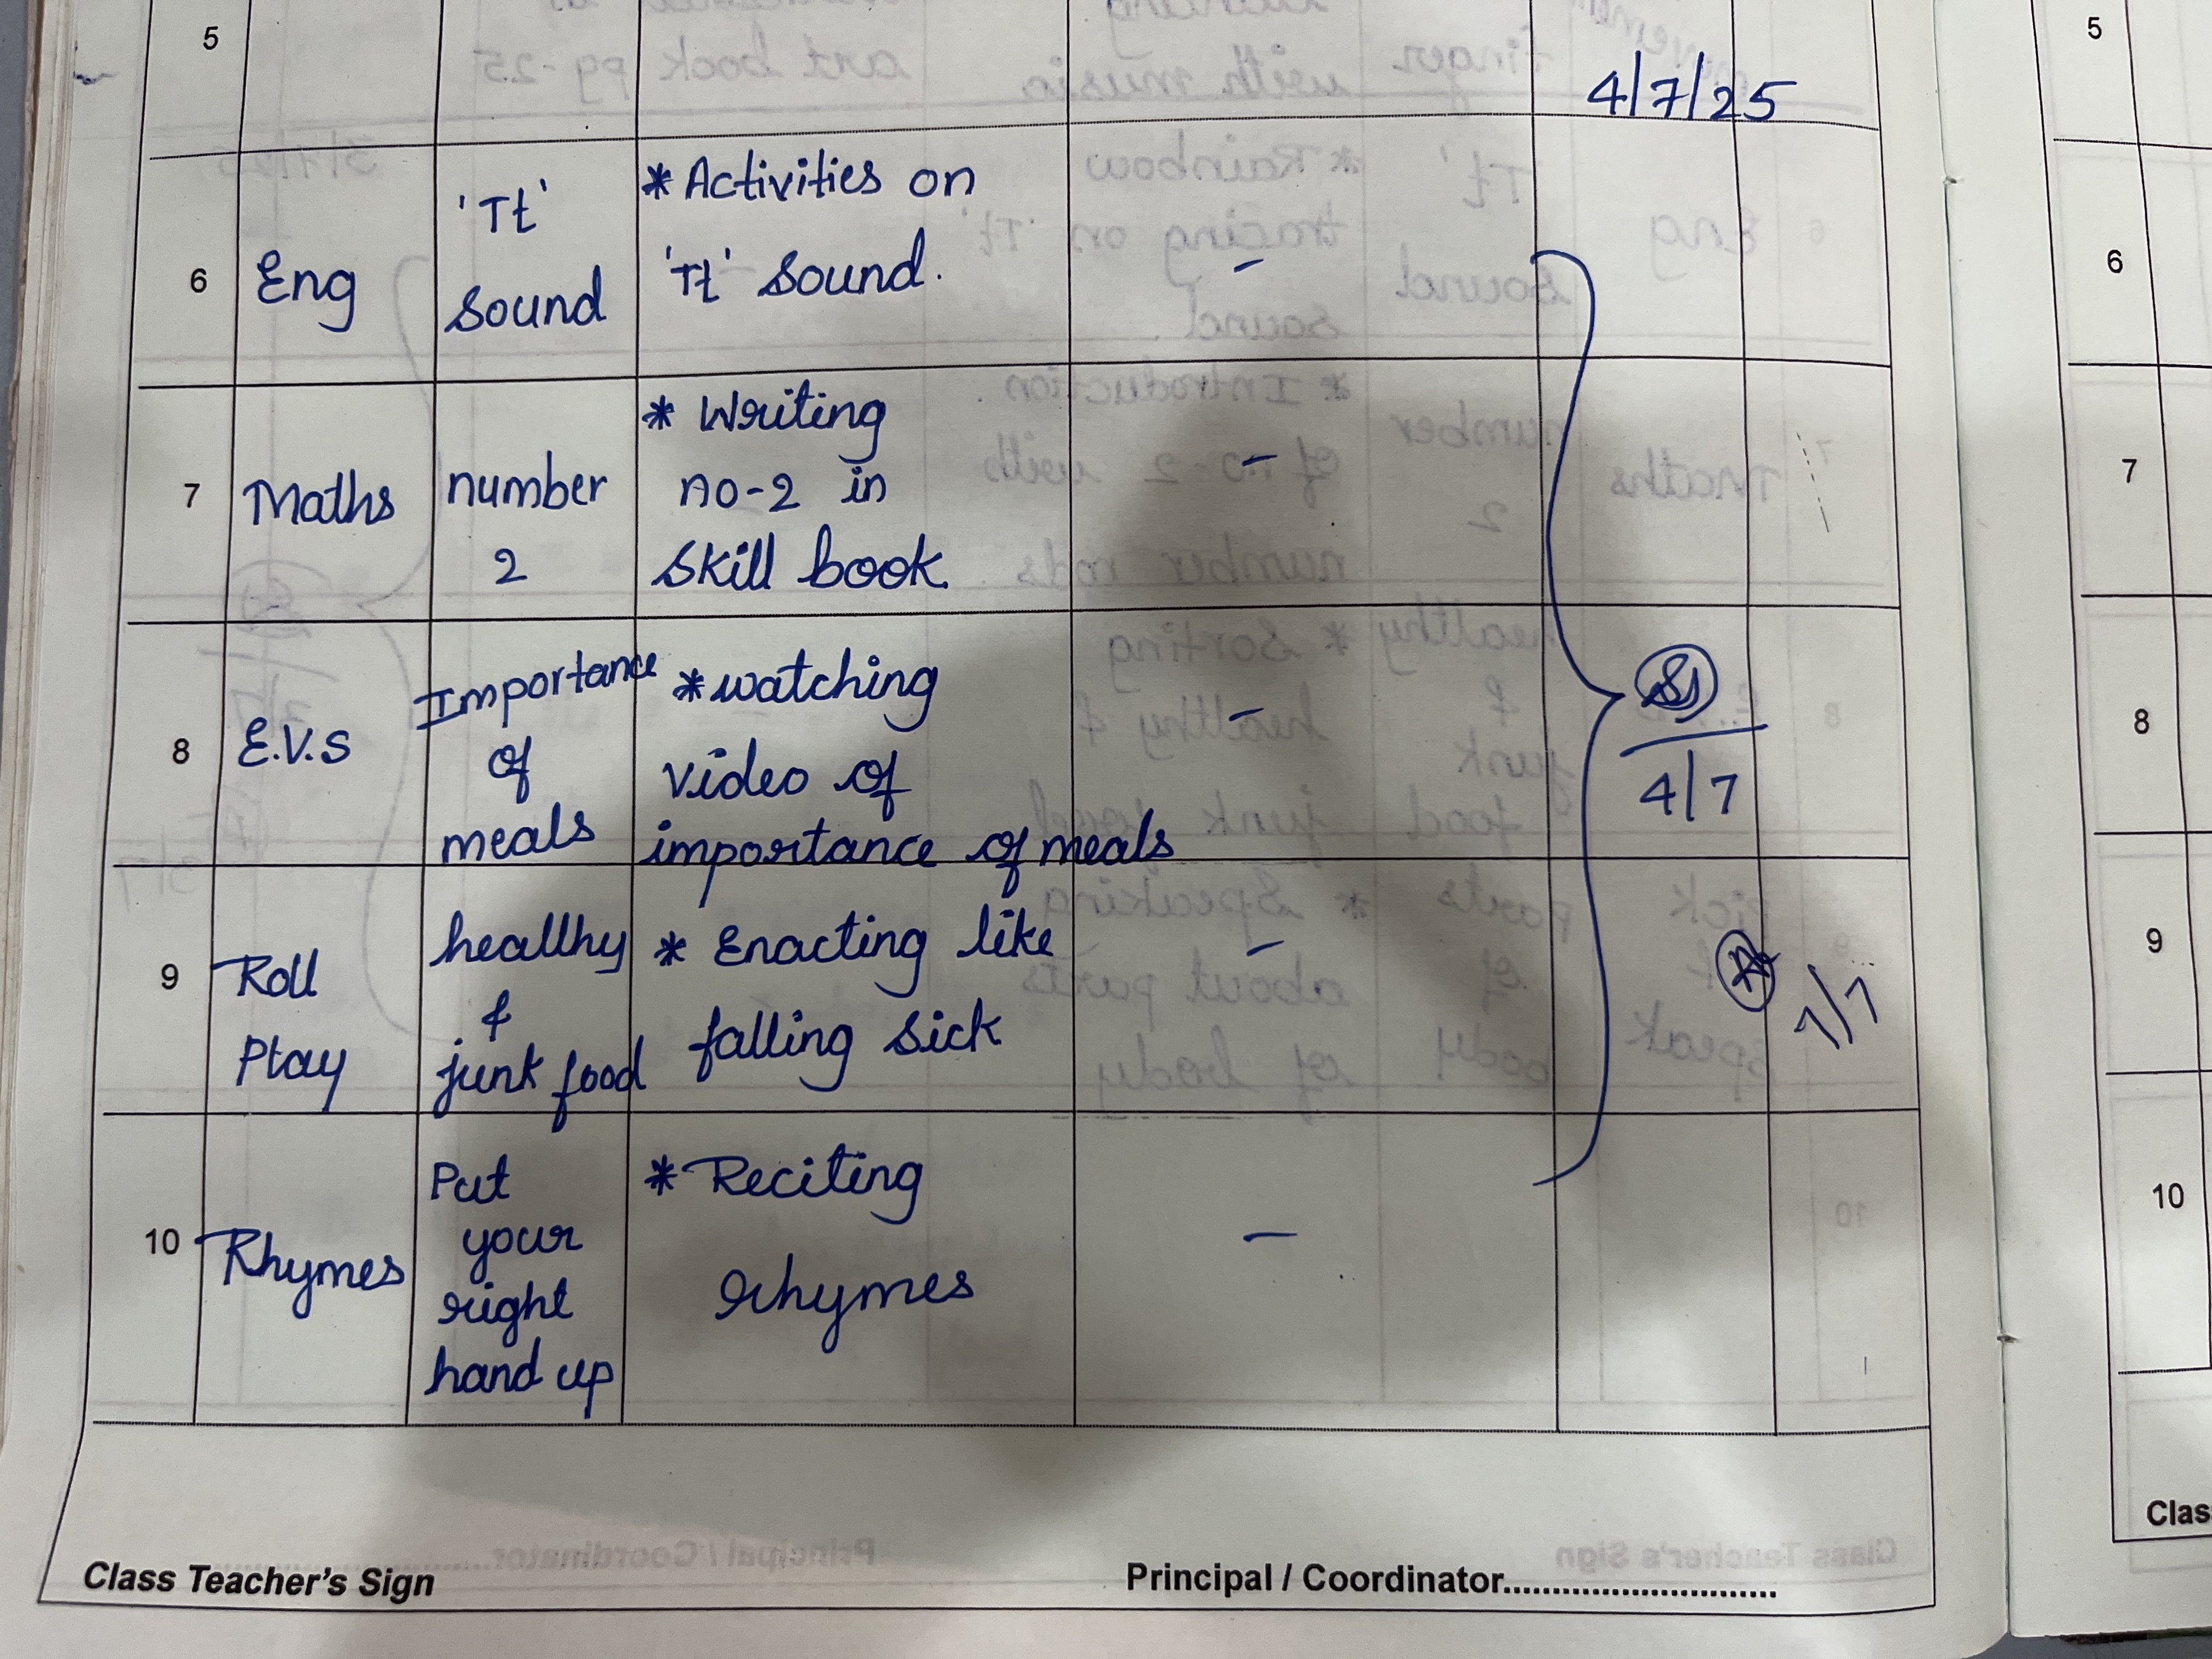 5
4/7/25
6
Eng
'Tt'
sound
* Activities on
'Tt' sound.
-
7
Maths
number
2
* Writing
no-2 in
skill book.
-
8
E.V.S
Importance
of
meals
* watching
video of
importance of meals
-
4/7
9
Roll
Play
healhy
&
junk food
* Enacting like
falling sick
-
7/7
10
Rhymes
Put
your
right
hand up
* Reciting
rhymes
-
Class Teacher's Sign
Principal / Coordinator............................
5
6
7
8
9
10
Clas